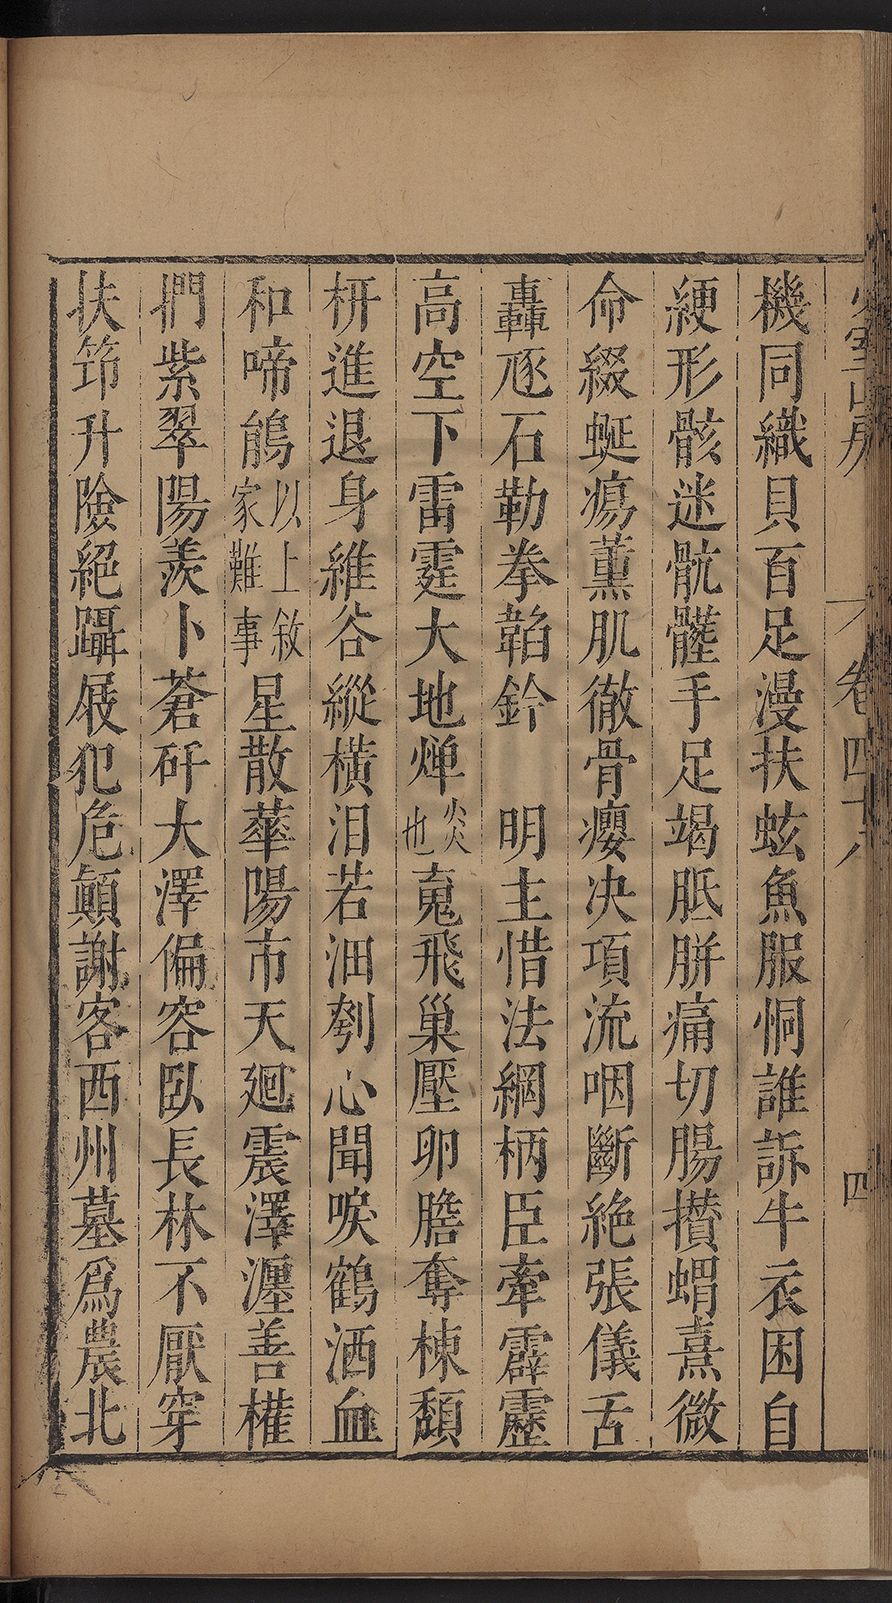 少室山房 卷四十八 四
機同織貝百足漫扶蚿魚服恫誰訴牛衣困自
綆形骸迷骯髒手足竭胝胼痛切腸攅蝟熹微
命綴蜒瘍薰肌徹骨癭决項流咽斷絶張儀舌
轟豗石勒拳韜鈐 明主惜法網柄臣牽霹靂
高空下雷霆大地燀炎也䰟飛巢壓卵膽奪棟頽
枅進退身維谷縱橫泪若泗刳心聞唳鶴洒血
和啼鵑以上敘家難事星散華陽市天廻震澤瀍善權
捫紫翠陽羨卜蒼矸大澤偏容臥長林不厭穿
扶笻升險絕躡屐犯危顛謝客西州墓爲農北